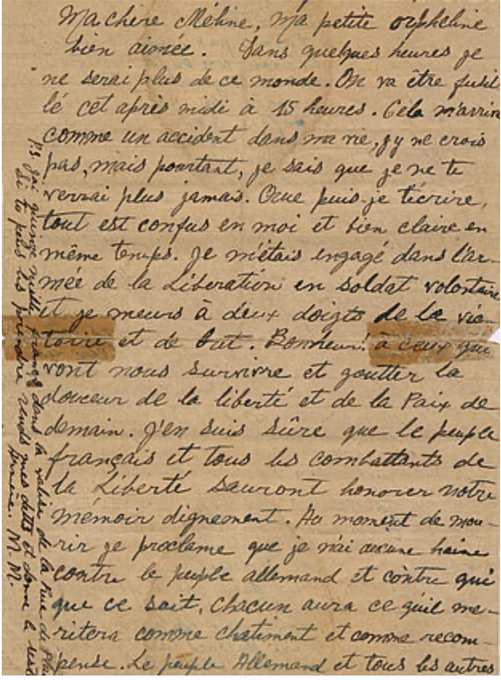 Ma chère Méline, ma petite orpheline
bien aimée. Dans quelques heures je
ne serai plus de ce monde. On va être fusil
lé cet après midi à 15 heures. Cela m'arrive
comme un accident dans ma vie, j'y ne crois
pas, mais pourtant, je sais que je ne te
verrai plus jamais. Que puis-je t'écrire,
tout est confus en moi et bien claire en
même temps. Je m'étais engagé dans l'ar-
mée de la Libération en soldat volontaire
et je meurs à deux doigts de la vic-
toire et de but. Bonheur! à ceux qui
vont nous survivre et goutter la
douceur de la liberté et de la Paix de
demain. J'en suis sûre que le peuple
français et tous les combattants de
la Liberté sauront honorer notre
mémoir dignement. Au moment de mou-
rir je proclame que je n'ai aucune haine
contre le peuple allemand et contre qui
que ce soit, chacun aura ce qu'il me-
ritera comme chatiment et comme recom-
pense. Le peuple Allemand et tous les autres
PS. J'ai quinze mille francs dans la valise de la Rue de Plai
si tu peux les prendre rends mes dettes et donne le reste
Armène. M. M.